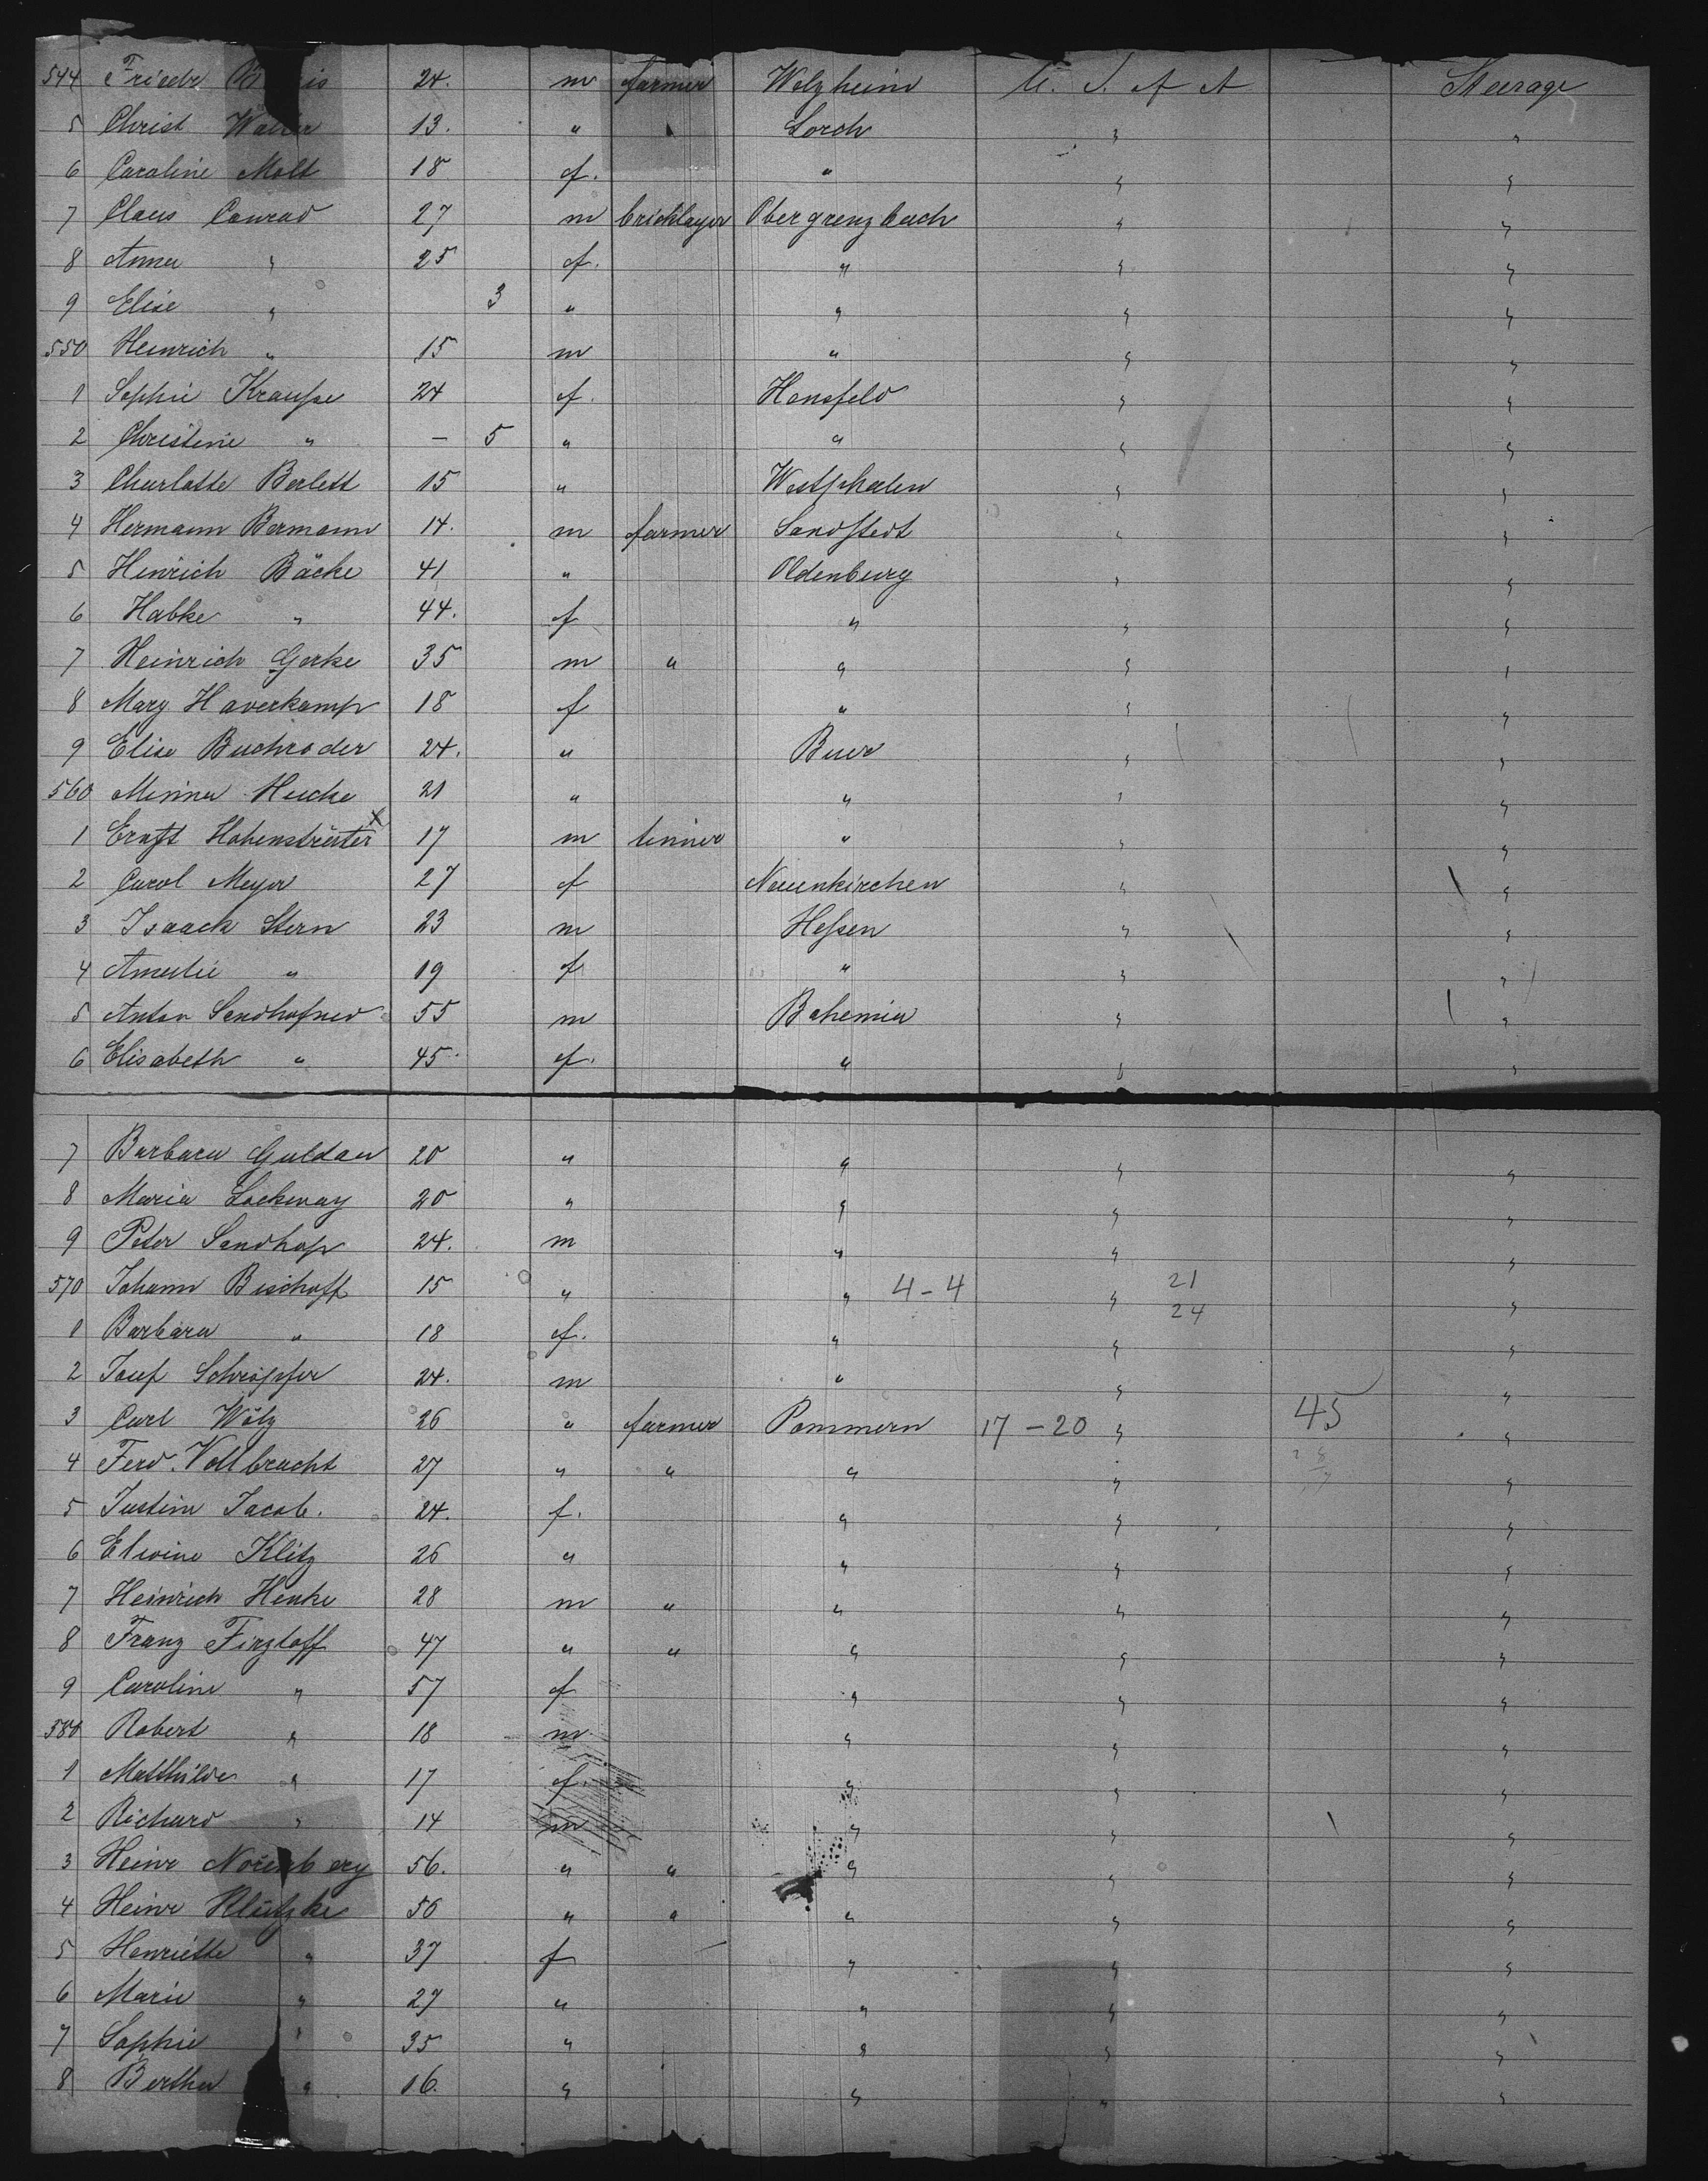 544 Friedr 24. m farmer Welzheim U. S. of A Steerage
5 Christ Walter 13. " Lorch " "
6 Caroline Molt 18 f. " " "
7 Claus Conrad 27 m bricklayer Obergrenzbach " "
8 Anna " 25 f. " " "
9 Elise " 3 " " " "
550 Heinrich " 15 m " " "
1 Sophie Krauße 24 f. Hansfeld " "
2 Christine " – 5 " " " "
3 Charlotte Berlett 15 " Westphalen " "
4 Hermann Bermann 14. m farmer Sandstedt " "
5 Hinrich Bäcke 41 " Oldenburg " "
6 Habke " 44. f " " "
7 Heinrich Gerke 35 m " " " "
8 Mary Haverkamp 18 f " " "
9 Elise Buchroder 24. " Buer " "
560 Minna Heucke 21 " " " "
1 Ernst Hohenströter x 17 m " " "
2 Carol Meyer 27 f Neuenkirchen " "
3 Isaack Stern 23 m Heßen " "
4 Amalie " 19 f " " "
5 Anton Sandhofner 55 m Bohemia " "
6 Elisabeth " 45 f. " " "
7 Barbara Guldan 20 " " " "
8 Maria Lockway 20 " " " "
9 Peter Sandhop 24. m " " "
570 Johann Bischoff 15 " " 4-4 " 21 24 "
1 Barbara " 18 f. " " "
2 Josef Schripfer 24. m " " "
3 Carl Wölz 26 " farmer Pommern 17-20 " 45 "
4 Ferd. Vollbracht 27 " " " " "
5 Justine Jacob. 24. f. " " "
6 Elwine Klitz 26 " " " "
7 Heinrich Henke 28 m " " " "
8 Franz Firzlaff 47 " " " " "
9 Caroline " 57 f " " "
580 Robert " 18 m " " "
1 Matthilde " 17 f. " " "
2 Richard " 14 m " " "
3 Heinr Nörenberg 56. " " " " "
4 Heinr Klützke 50 " " " " "
5 Henriette " 37 f " " "
6 Marie " 27 " " " "
7 Sophie " 35 " " " "
8 Bertha " 16. " " " "